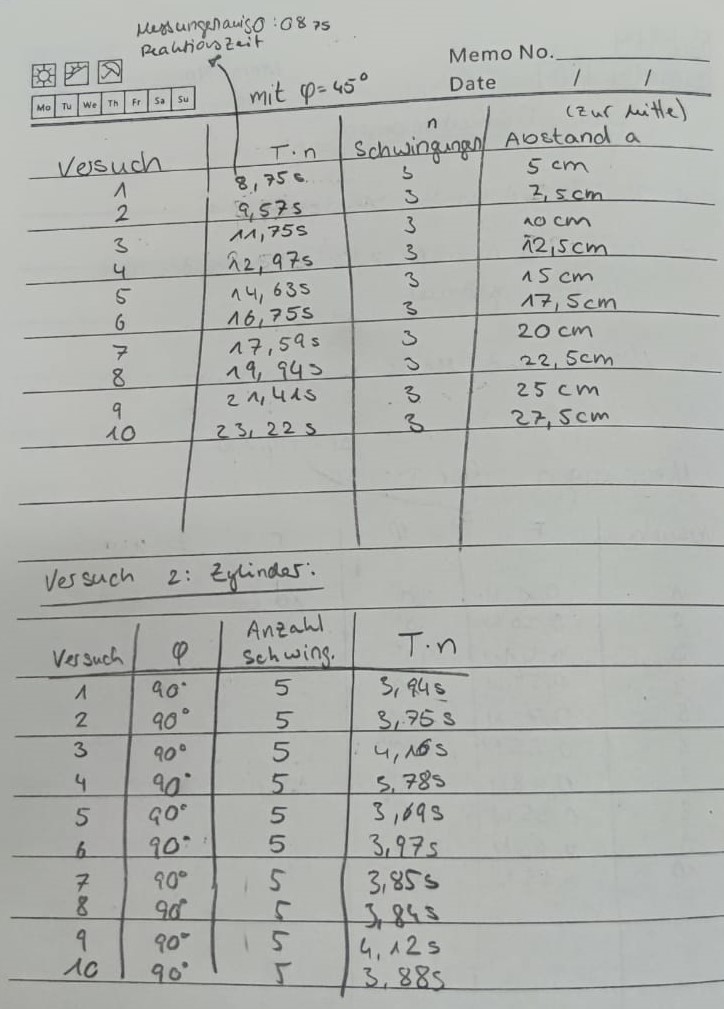 Messungenauig0:087s
Reaktionszeit
Memo No.
Mo Tu We Th Fr Sa Su
mit φ=45°
Date / /
(zur Mitte)
Versuch T·n n Schwingungen Abstand a
1 8,75s 3 5 cm
2 9,57s 3 7,5cm
3 11,75s 3 10 cm
4 12,97s 3 12,5cm
5 14,63s 3 15 cm
6 16,75s 3 17,5cm
7 17,59s 3 20 cm
8 19,94s 3 22,5cm
9 21,41s 3 25 cm
10 23,22s 3 27,5cm
Versuch 2: Zylinder:
Versuch φ Anzahl Schwing. T·n
1 90° 5 3,94s
2 90° 5 3,75s
3 90° 5 4,16s
4 90° 5 3,78s
5 90° 5 3,69s
6 90° 5 3,97s
7 90° 5 3,85s
8 90° 5 3,84s
9 90° 5 4,12s
10 90° 5 3,88s